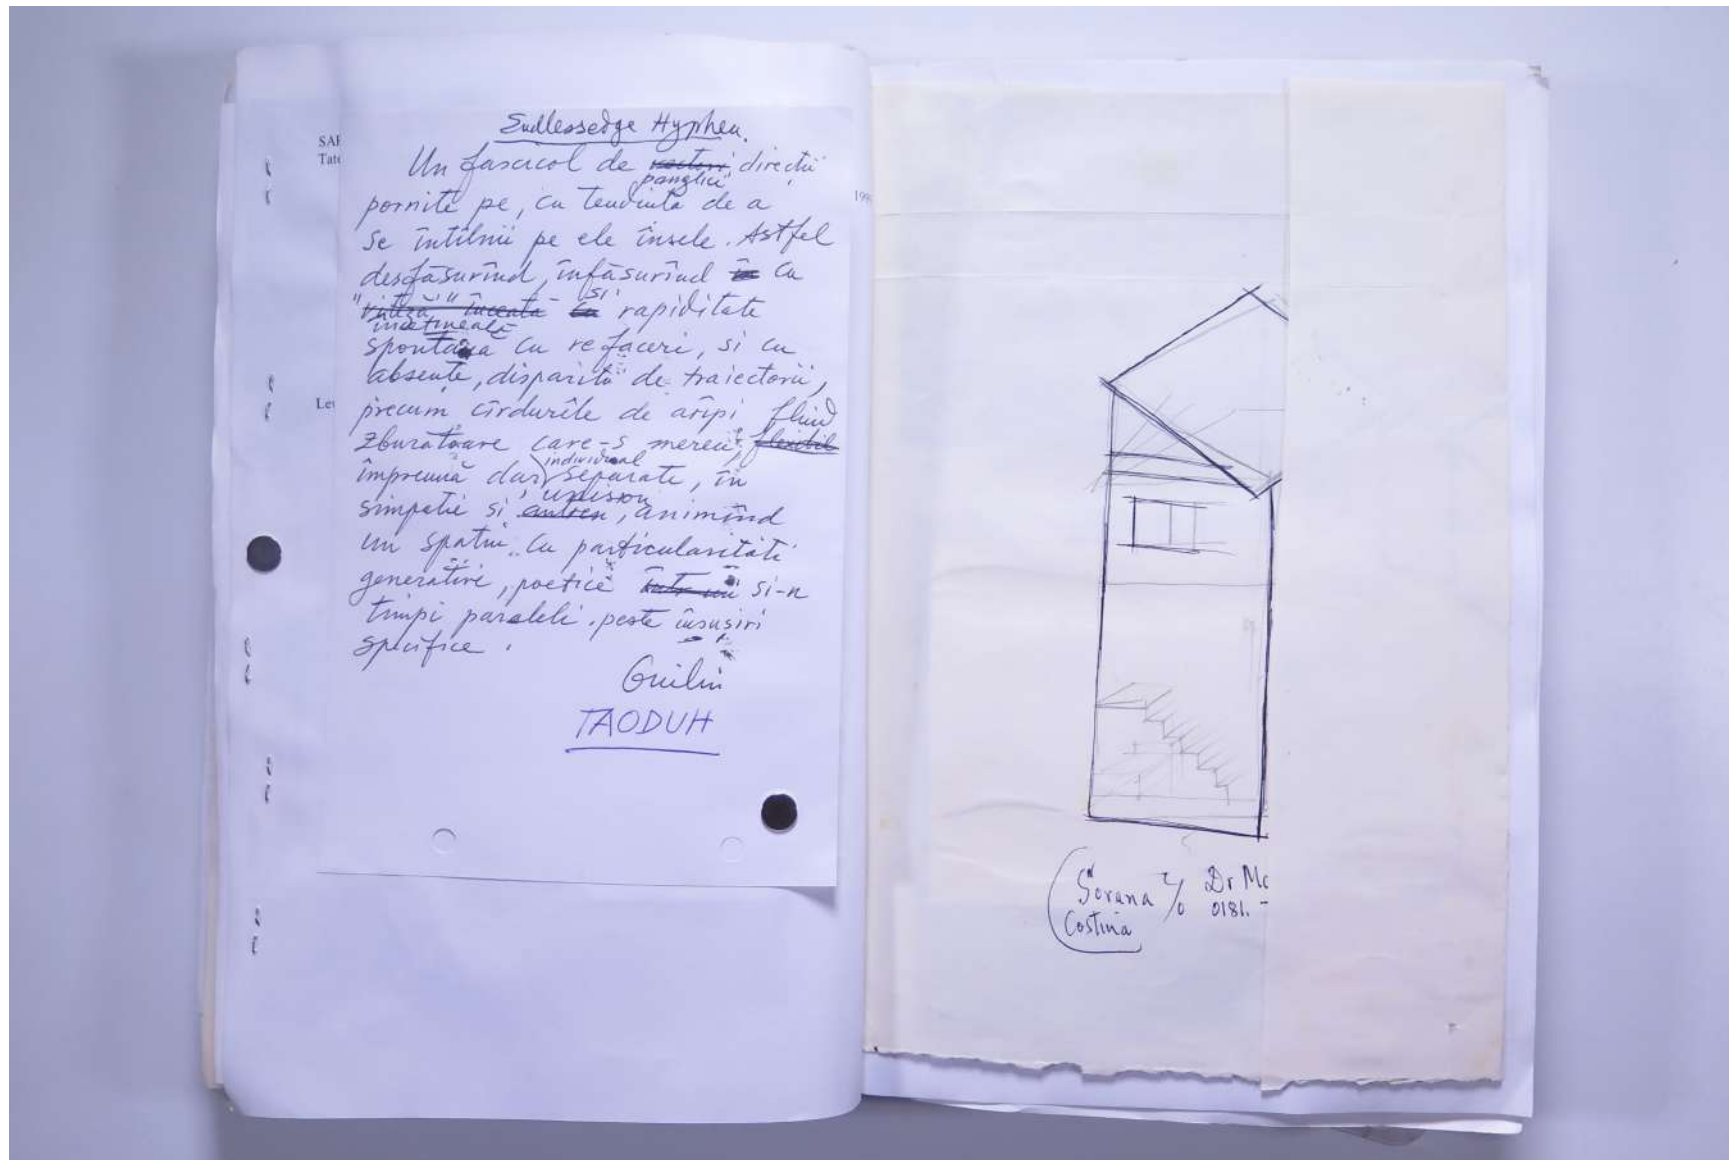 SAF
Tate
199
Let
Endlessedge Hyphen.
Un fascicol de vectori directii
"panglici"
pornite pe, cu tendinta de a
se întîlnii pe ele însele. Astfel
desfăsurînd, înfăsurînd în cu
si
"viteză" înceată cu rapiditate
încetineală
spontană cu refaceri, si cu
absente, disparitii de traiectorii,
precum cîrdurile de aripi fluid
zburătoare care-s mereu, flexibil
individual
împreună dar separate, în
unison
simpatie si antren, animînd
un spatiu cu particularităti
generative, poetice si-n
timpi paraleli. peste însusiri
specifice.
Guilin
TAODUH
Sorana c/o Dr Mc
Costina 0181. -